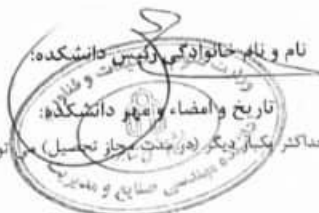 نام و نام خانوادگی رئیس دانشکده:
تاریخ و امضاء و مهر دانشکده:
حداکثر یکبار دیگر (در مدت مجاز تحصیل) می تو
دانشکده مهندسی صنایع و مدیریت